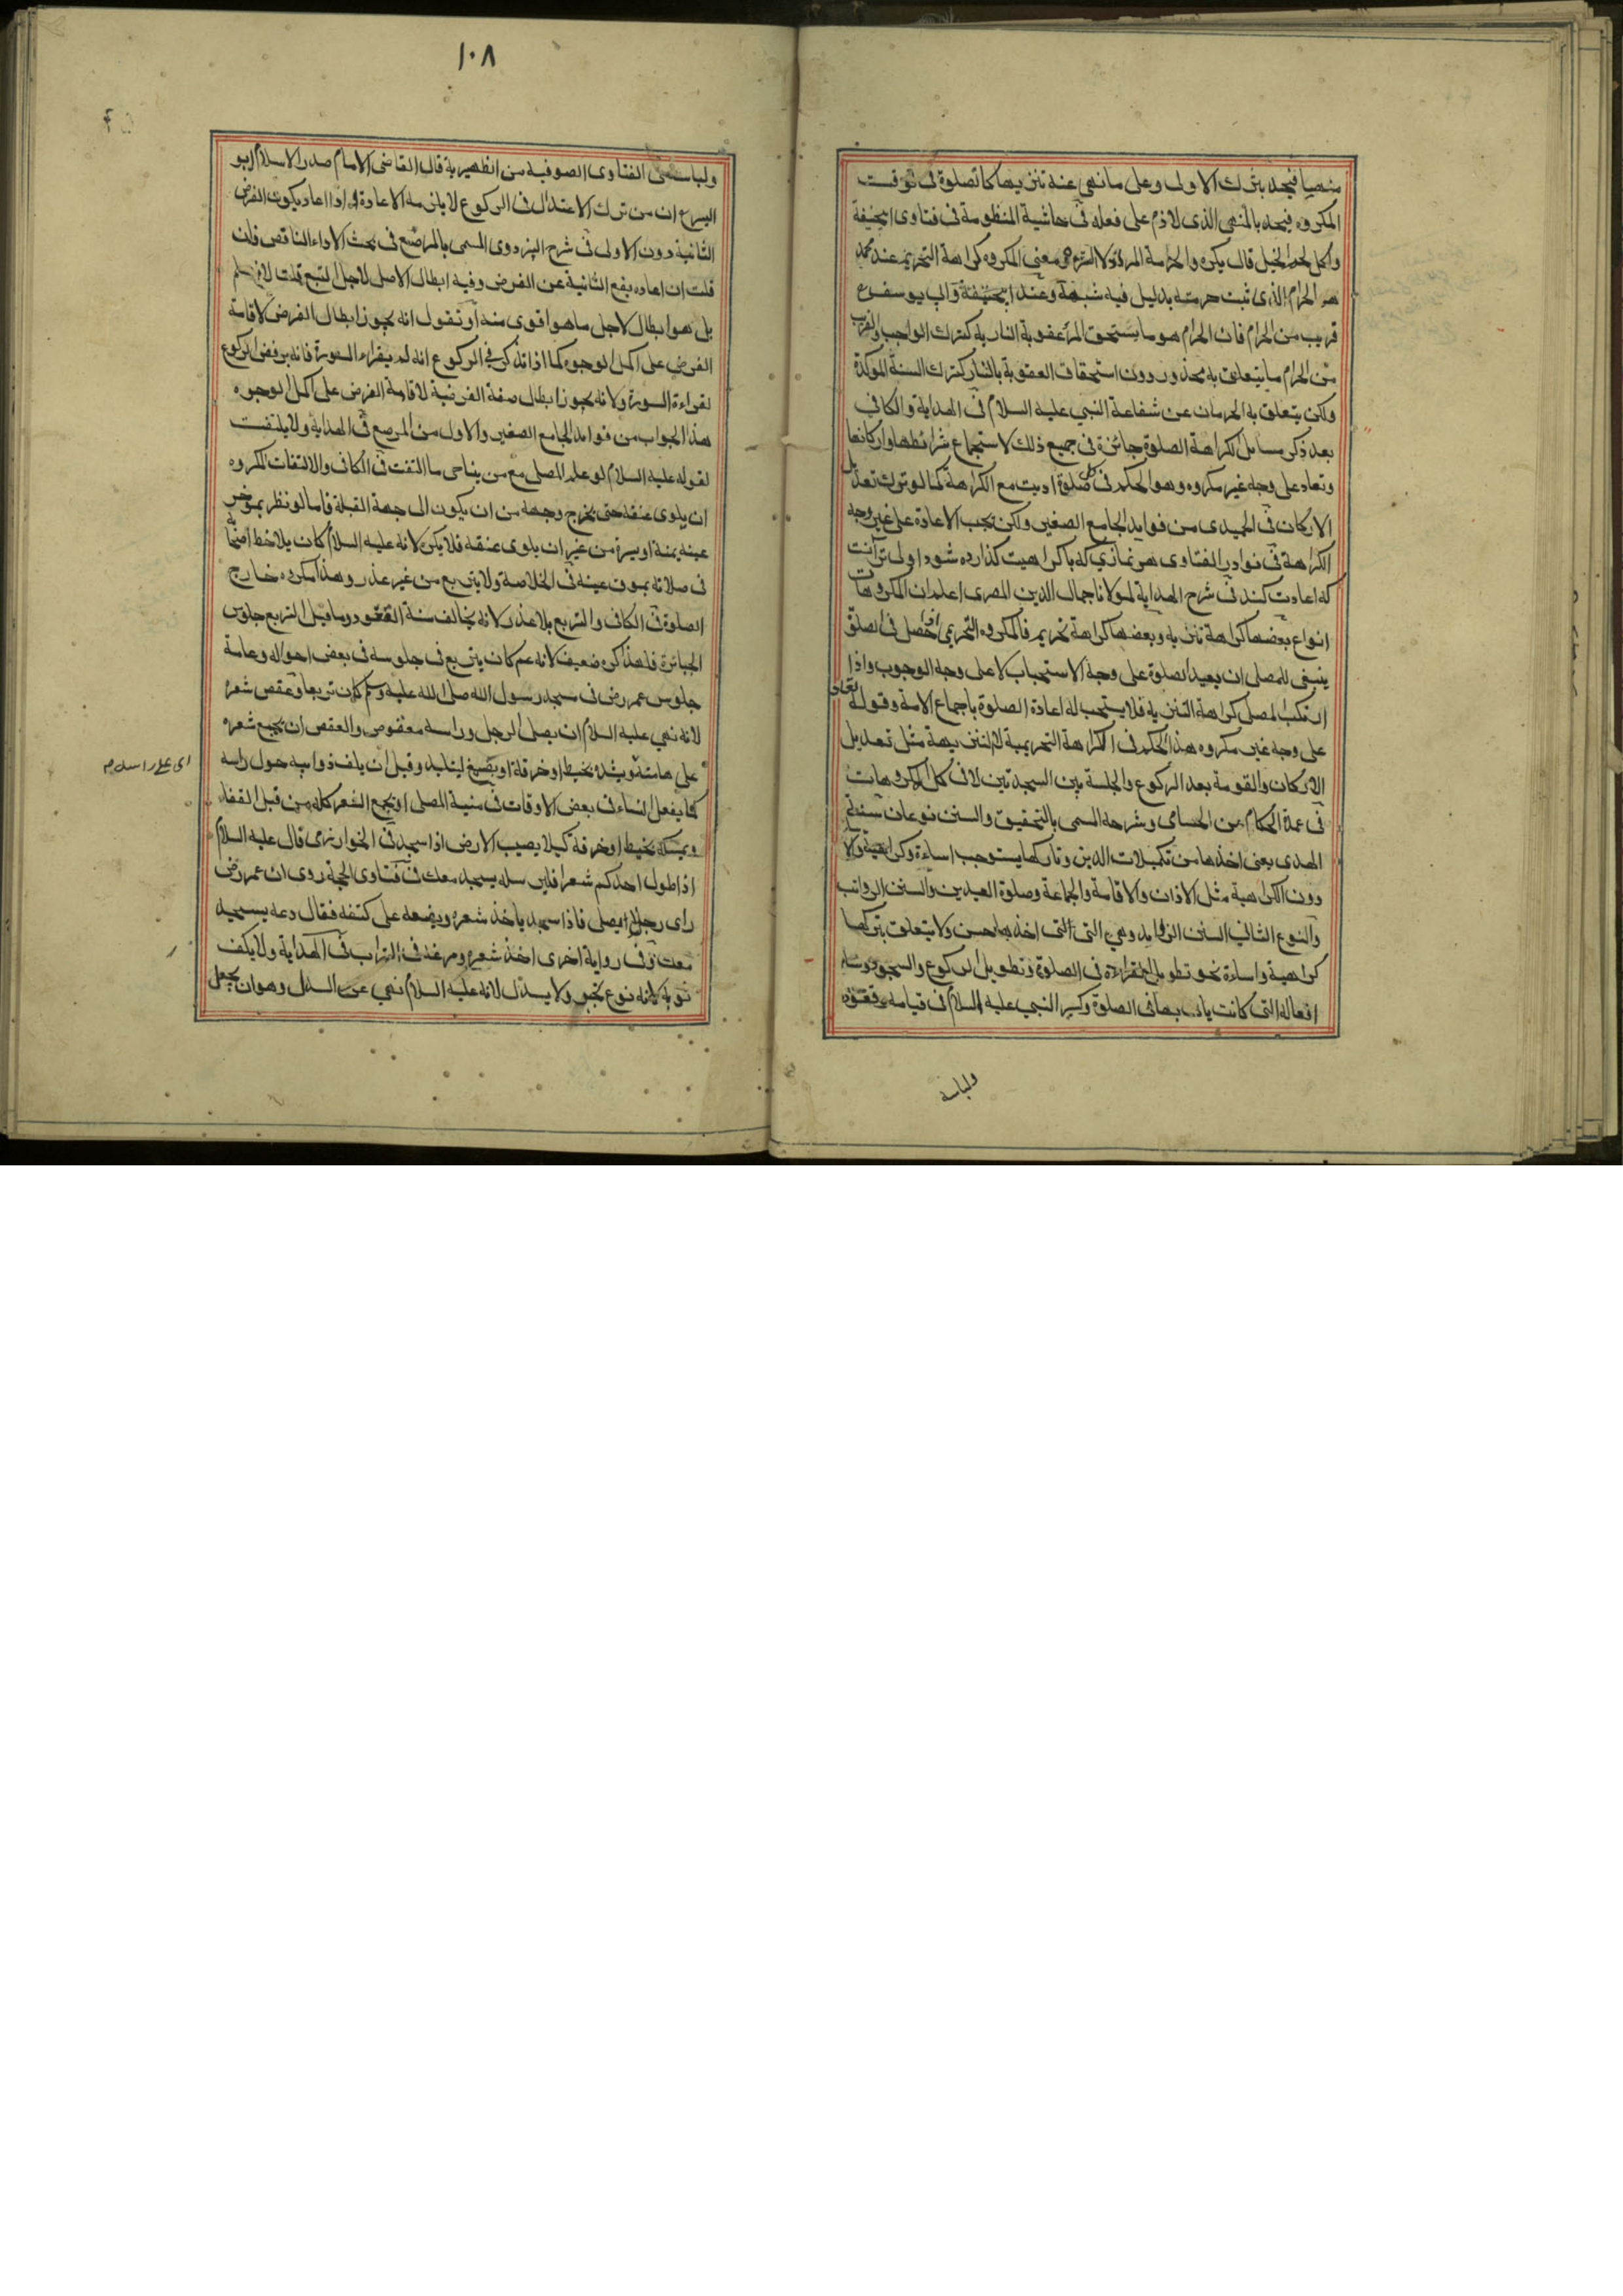 منهيا فيحد بترك الاولى وعلى ما نهى عنه تنزيها كالصلوة فى توقيت
المكروه فيحد بالمنهى الذى لا ذم على فعله فى حاشية المنظومة فى فتاوى ابيحنيفة
واكل لحم الخيل قال يكره والحراسة المراد معنى المكروه كراهة التحريم عند محمد
هو الحرام الذى ثبت حرمته بدليل فيه شبهة وعند ابيحنيفة وابى يوسف رح
قريب من الحرام فان الحرام هو ما يستحق المرأ عقوبة النار به كترك الواجب والقريب
من الحرام ما يتعلق به محذور دون استحقاق العقوبة بالنار كترك السنة المؤكدة
ولكن يتعلق به الحرمان عن شفاعة النبى عليه السلام فى الهداية والكافى
بعد ذكر مسائل الكراهة الصلوة جائزة فى جميع ذلك لاستجماع شرائطها واركانها
وتعاد على وجه غير مكروه وهو الحكم فى كل صلوة اديت مع الكراهة كما لو ترك تعديل
الاركان فى الحميدى من فوايد الجامع الصغير ولكن يجب الاعادة على غير وجه
الكراهة فى نوادر الفتاوى هر نمازى كه با كراهيت كذارده شود اولى تر آنست
كه اعادت كند فى شرح الهداية لمولانا جمال الدين المصرى اعلم ان المكروهات
انواع بعضها كراهة تنزيه وبعضها كراهة تحريم فالمكروه التحريمى اذا حصل فى الصلوة
ينبغى للمصلى ان يعيد الصلوة على وجه الاستحباب لا على وجه الوجوب واذا
ارتكب المصلى كراهة التنزيه فلا يستحب له اعادة الصلوة باجماع الامة وقوله تعاد
على وجه غير مكروه هذا الحكم فى الكراهة التحريمية لا التنزيهة مثل تعديل
الاركان والقومة بعد الركوع والجلسة بين السجدتين لا فى كل المكروهات
فى عمدة الحكام من الحسامى وشرحه المسمى بالتحقيق والسنن نوعان سنة
الهدى يعنى اخذها من تكميلات الدين وتاركها يستوجب اساءة وكراهية
دون الكراهية مثل الاذان والاقامة والجماعة وصلوة العيدين والسنن الرواتب
والنوع الثانى السنن الزوايد وهى التى اخذها حسن ولا يتعلق بتركها
كراهية واساءة نحو تطويل القراءة فى الصلوة وتطويل الركوع والسجود وسائر
افعاله التى كانت ياتى بها فى الصلوة وسير النبى عليه السلام فى قيامه وقعوده
ولباسه
١٠٨
ولباسه فى الفتاوى الصوفية من الظهيرية قال القاضى الامام صدر الاسلام ابو
اليسر ان من ترك الاعتدال فى الركوع لا يلزمه الاعادة واذا اعاد يكون الفرض
الثانية دون الاولى فى شرح البزدوى المسمى بالمرصع فى بحث الاداء الناقص فان
قلت ان اعاده يقع الثانية عن الفرض وفيه ابطال الاصل لاجل التبع قلت لا نسلم
بل هو ابطال لاجل ما هو اقوى منه او نقول انه يجوز ابطال الفرض لاقامة
الفرض على اكمل الوجوه كما اذا تذكر فى الركوع انه لم يقراء السورة فانه يرفض الركوع
لقراءة السورة ولانه يجوز ابطال صفة الفرضية لاقامة الفرض على اكمل الوجوه
هذا الجواب من فوايد الجامع الصغير والاول من المرصع فى الهداية ولا يلتفت
لقوله عليه السلام لو علم المصلى مع من يناجى ما التفت فى الكافى والالتفات المكروه
ان يلوى عنقه حتى يخرج وجهه من ان يكون الى جهة القبلة فاما لو نظر بمؤخر
عينه يمنة او يسرة من غير ان يلوى عنقه فلا يكره لانه عليه السلام كان يلاحظ اصحابه
فى صلاته بموق عينه فى الخلاصة ولا يتربع من غير عذر وهذا مكروه خارج
الصلوة فى الكافى والتربع بلا عذر لانه يخالف سنة القعود وما قيل التربع جلوس
الجبابرة فلهذا كره ضعيف لانه عم كان يتربع فى جلوسه فى بعض احواله وعامة
جلوس عمر رض فى مسجد رسول الله صلى الله عليه وسلم كان تربعا وعقص شعره
لانه نهى عليه السلام ان يصلى الرجل وراسه معقوص والعقص ان يجمع شعره
على هامته ويشده بخيط او خرقة او بصمغ ليتلبد وقيل ان يلف ذوايبه حول راسه
كما يفعل النساء فى بعض الاوقات فى منية المصلى او يجمع الشعر كله من قبل القفا
ويمسكه بخيط او خرقة كيلا يصيب الارض اذا سجد فى الخوارزمى قال عليه السلام
اذا طول احدكم شعرا فليرسله يسجد معك فى فتاوى الحجة روى ان عمر رض
راى رجلا يصلى فاذا سجد ياخذ شعره ويضعه على كتفه فقال دعه يسجد
معك وفى رواية اخرى اخذ شعره ومرغه فى التراب فى الهداية ولا يكف
ثوبه لانه نوع تجبر ولا يسدل لانه عليه السلام نهى عن السدل وهو ان يجعل